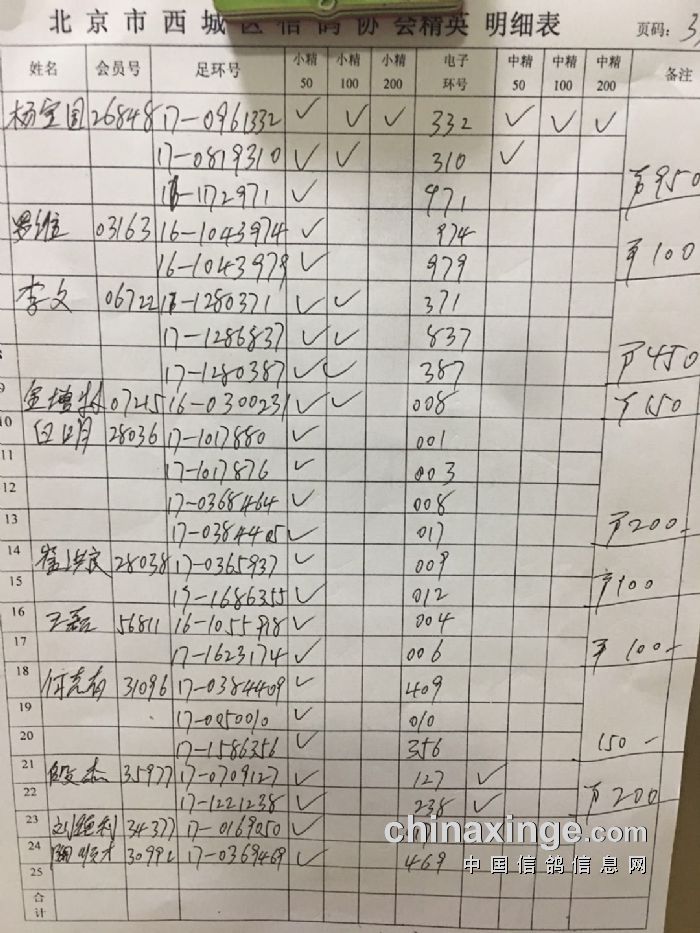 北京市西城区信鸽协会精英 明细表 页码：3
姓名 会员号 足环号 小精50 小精100 小精200 电子环号 中精50 中精100 中精200 备注
杨宝国 26848 17-0961332 ✓ ✓ ✓ 332 ✓ ✓ ✓
17-0819310 ✓ ✓ 310 ✓
172971 ✓ 971 ¥950
罗维 03163 16-1043974 ✓ 974
16-1043979 ✓ 979 ¥100
李文 06722 17-1280371 ✓ ✓ 371
17-1286837 ✓ ✓ 837
8 17-1280387 ✓ ✓ 387 ¥450
9 07215 16-0300231 ✓ ✓ 008 ¥150
10 28036 17-1017880 ✓ 001
11 17-1017876 ✓ 003
12 17-0368464 ✓ 008
13 17-0384405 ✓ 017 ¥200-
14 28038 17-0365937 ✓ 009
15 17-1686355 ✓ 012 ¥100
16 王磊 56811 16-1055918 ✓ 004
17 17-1623174 ✓ 006 ¥100-
18 31096 17-0384409 ✓ 409
19 17-0050010 ✓ 010
20 17-1586356 ✓ 356 150-
21 段杰 35977 17-0709127 ✓ 127 ✓
22 17-1221238 ✓ 238 ✓ ¥200
23 34377 17-0169050 ✓
24 30992 17-0369469 ✓ 469
25
合计
chinaxinge.com
中国信鸽信息网